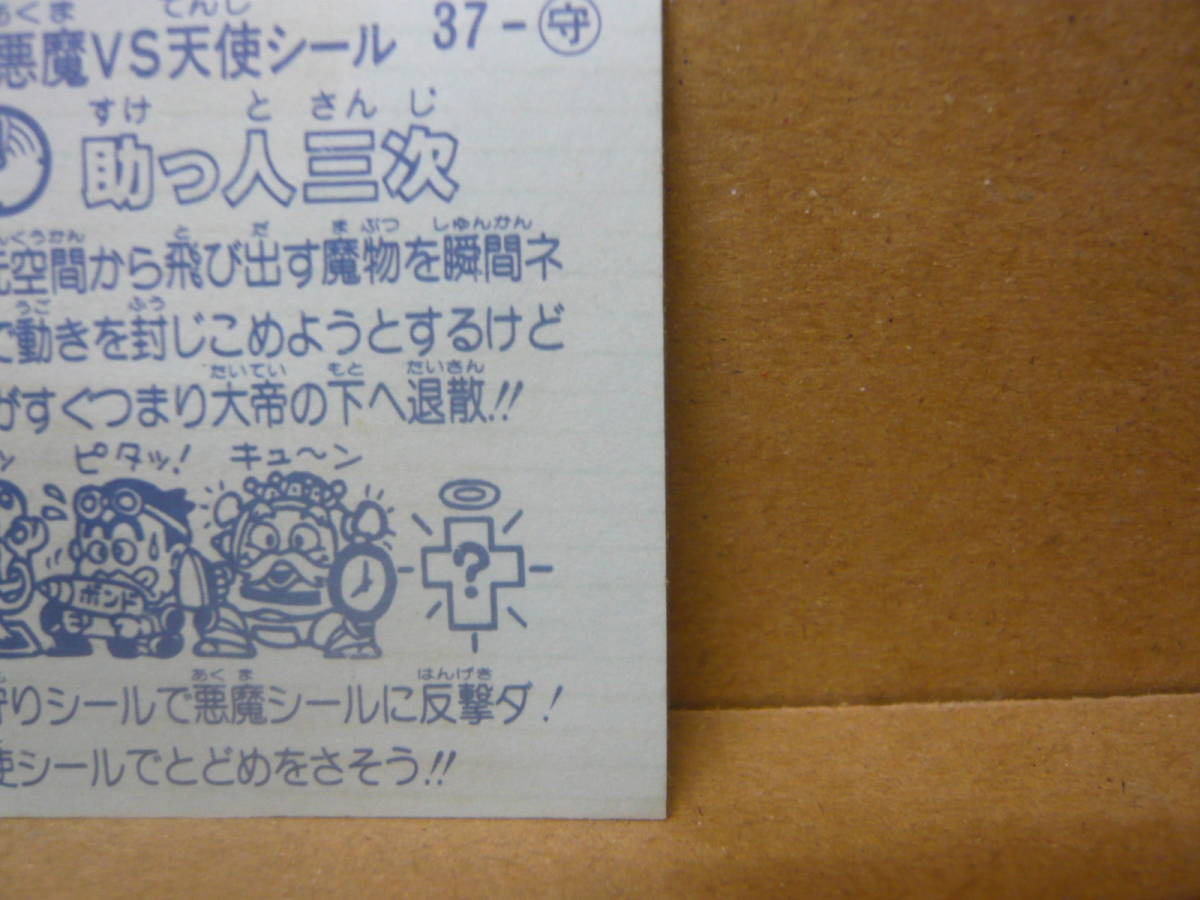 あくま てんし
悪魔VS天使シール 37-守
すけ と さん じ
助っ人三次
くうかん と だ ま ぶつ しゅんかん
元空間から飛び出す魔物を瞬間ネ
うご ふう
で動きを封じこめようとするけど
たいてい もと たいさん
がすぐつまり大帝の下へ退散!!
ッ ピタッ! キュ〜ン
ボンド
?
あく ま はんげき
狩りシールで悪魔シールに反撃ダ!
使シールでとどめをさそう!!